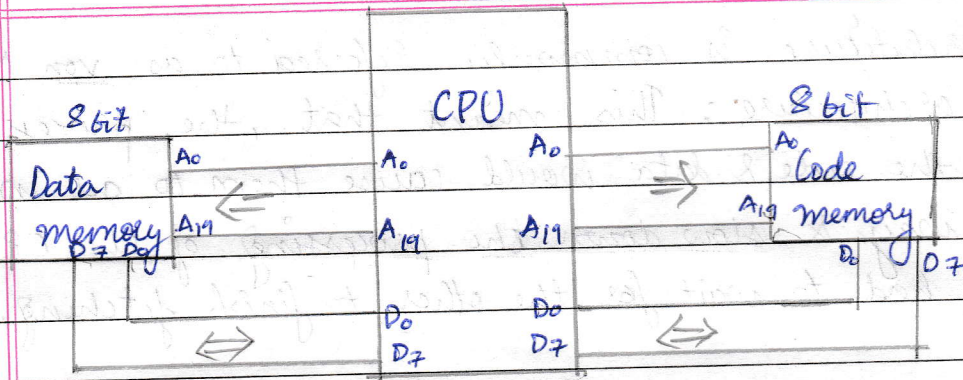 8 bit
CPU
8 bit
Data
memory
A0
A19
D7 D0
A0
A19
D0
D7
A0
A19
D0
D7
A0
A19
Code
memory
D0
D7